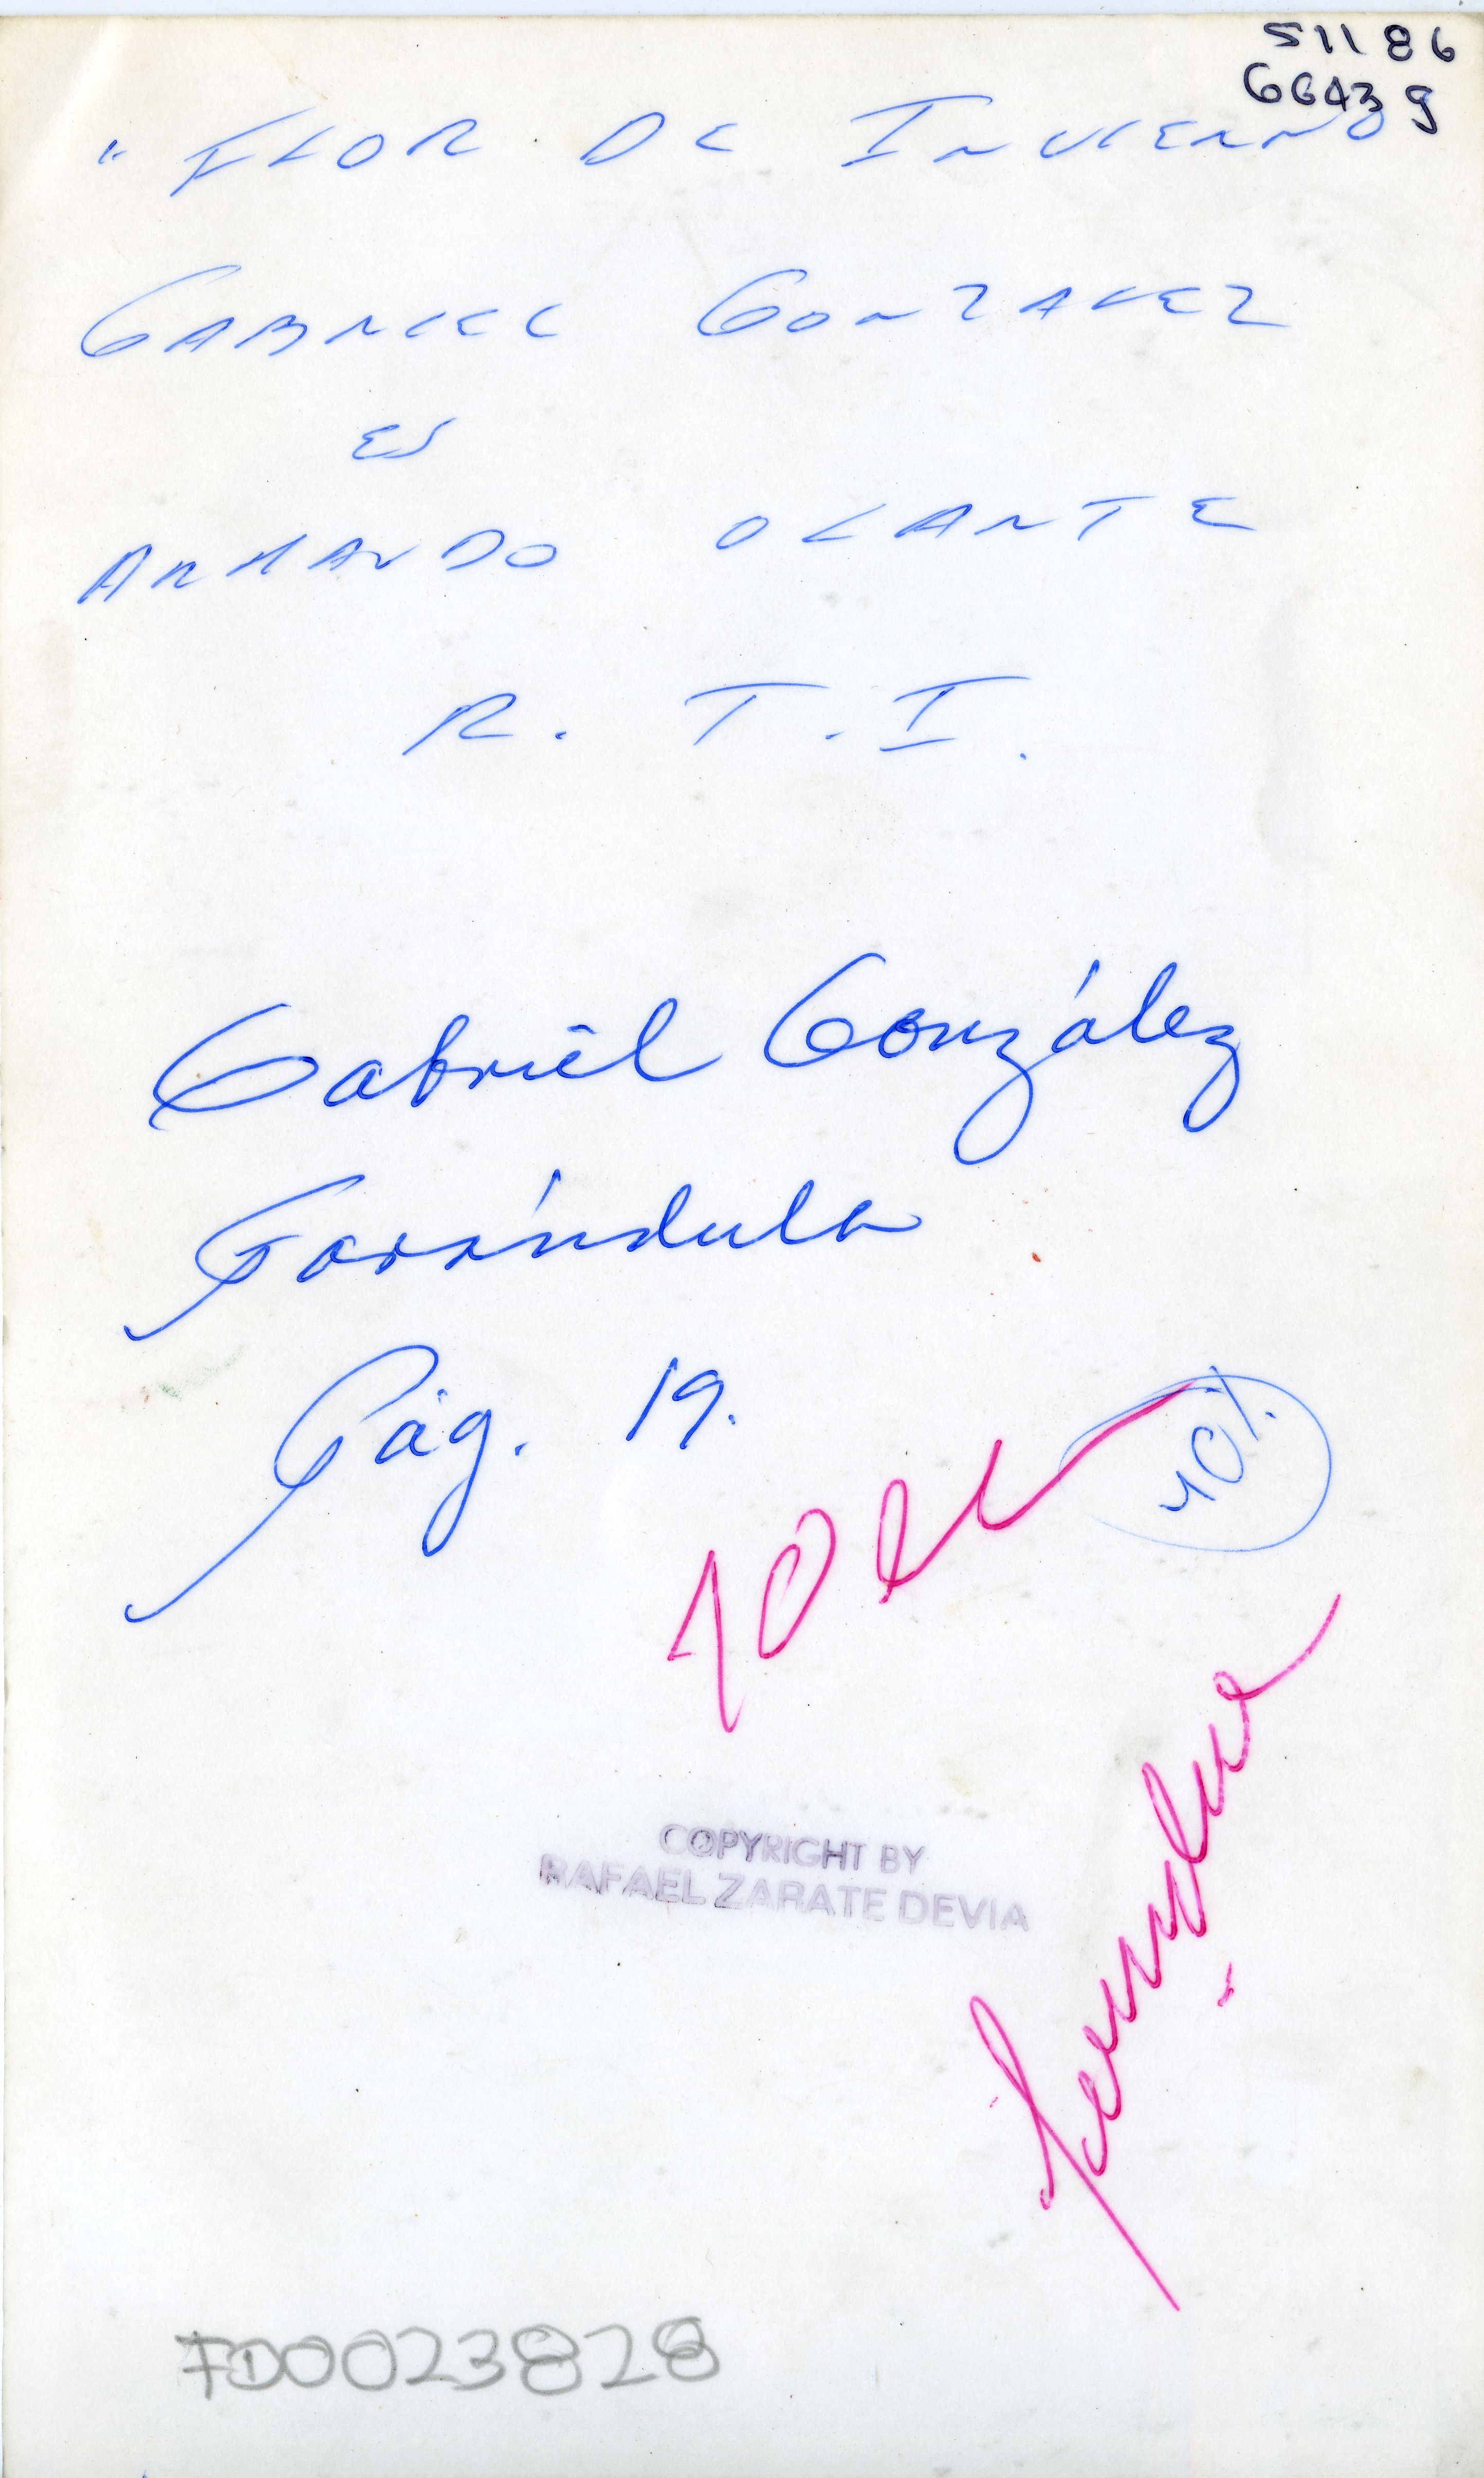 51186
66439
" FLOR DE INVIERNO
GABRIEL GONZALEZ
ES
ARMANDO OLARTE
R. T. I.
Gabriel González
Farándula
Pág. 19.
40%
10 cm
farandula
COPYRIGHT BY
RAFAEL ZARATE DEVIA
FD0023828